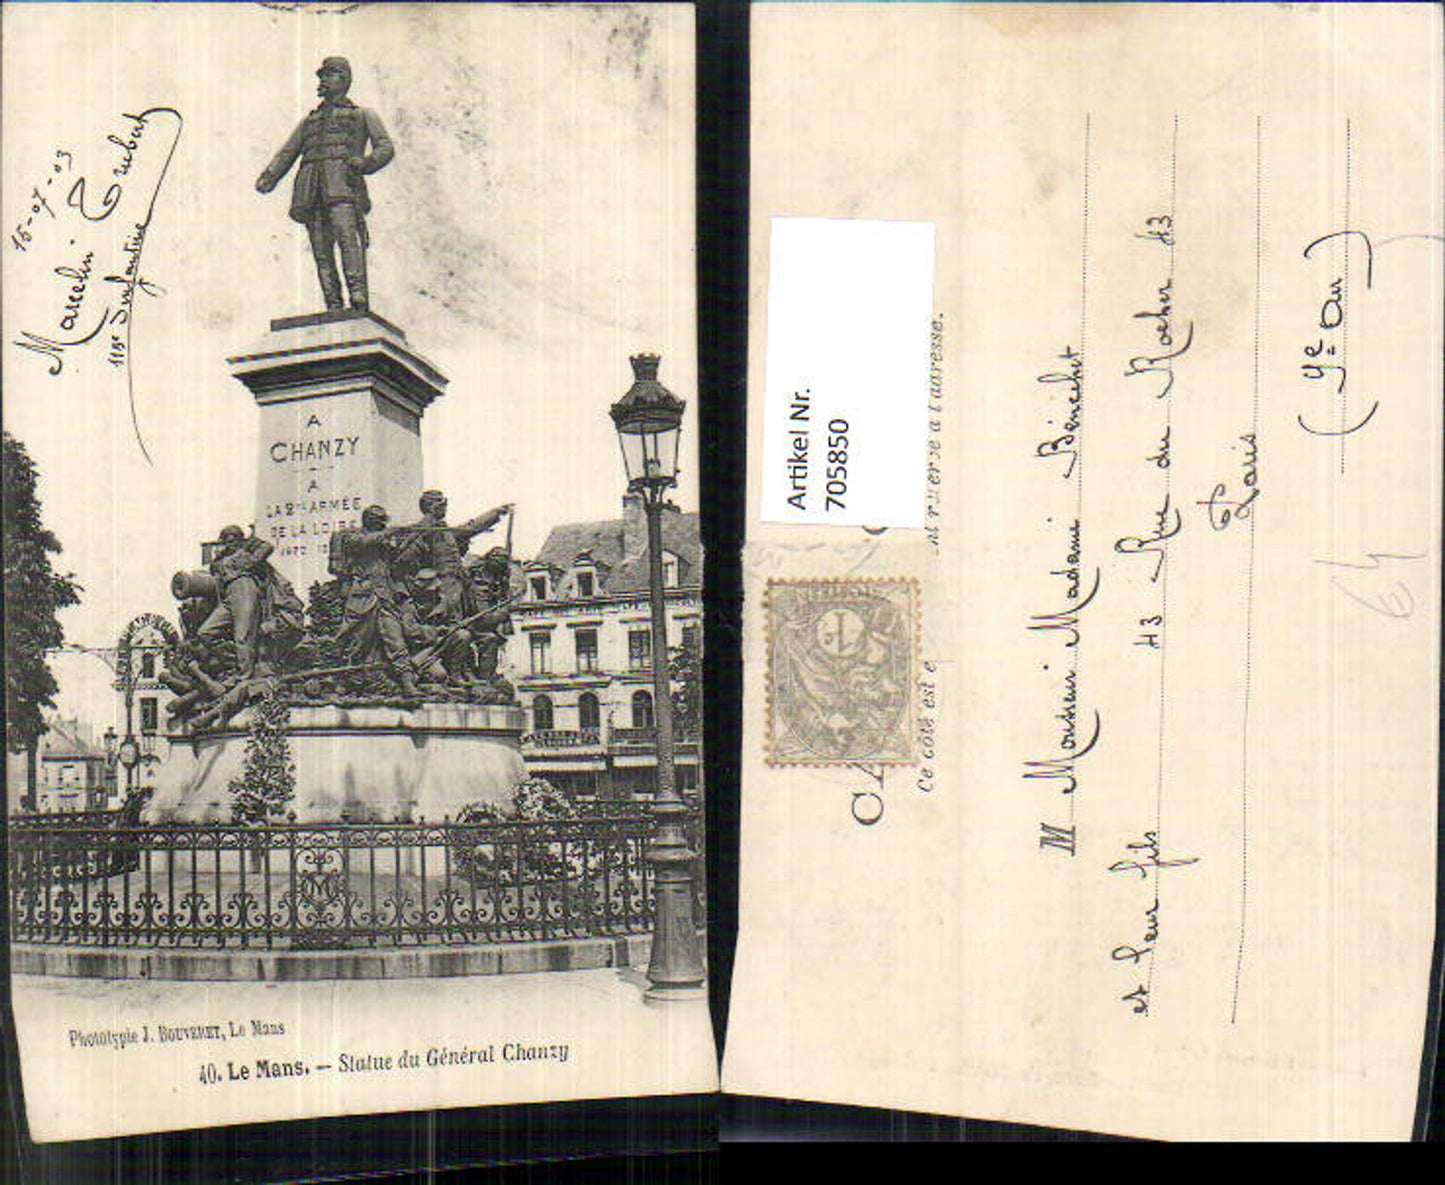 15-07-03
Marcelin Trubert
115e Infanterie
A
CHANZY
A
LA 2me ARMÉE
DE LA LOIRE
Phototypie J. BOUVERET, Le Mans
40. Le Mans. — Statue du Général Chanzy
Artikel Nr.
705850
Ce côté est e
à l'adresse.
M Monsieur Madame Bénichet
et leur fils 43 Rue du Rocher 43
Paris